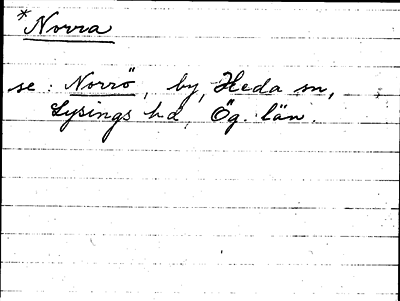 *Norra
se: Norrö, by, Heda sn,
Lysings hd, Ög. län.